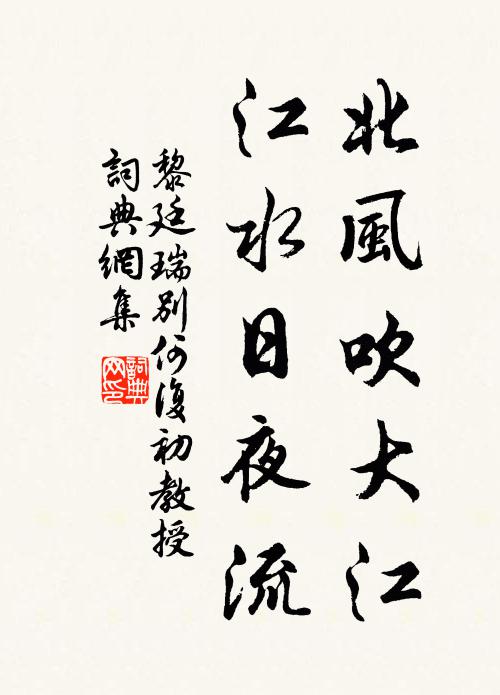 北風吹大江
江水日夜流
黎廷瑞別何復初教授
詞典網集
詞典網印